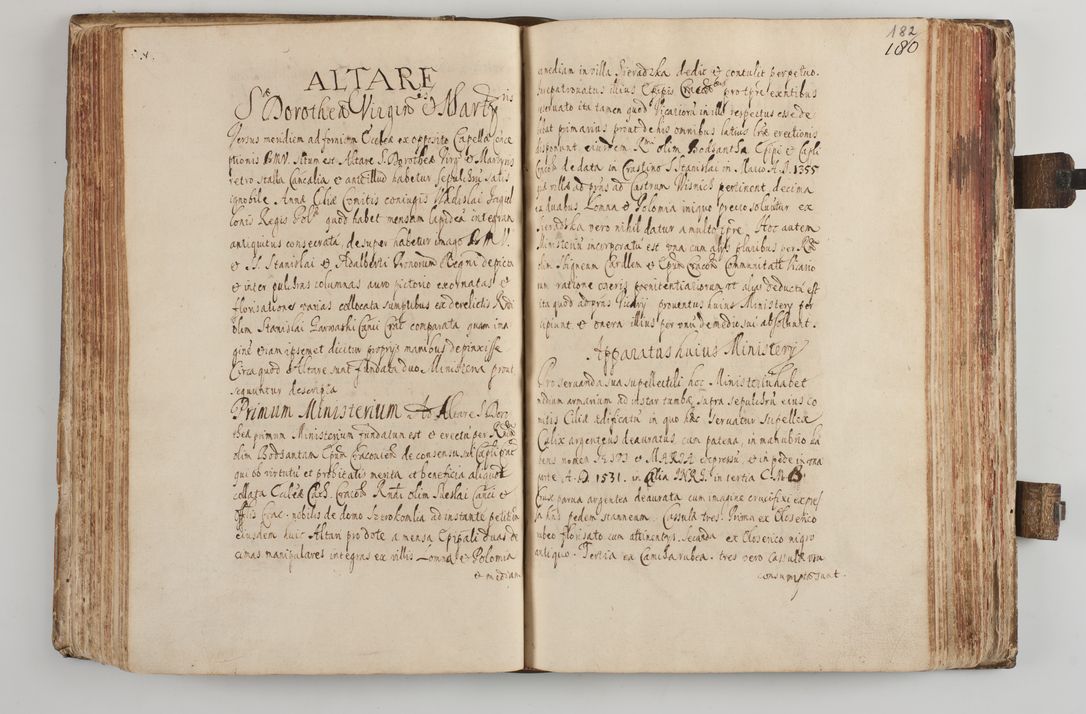 ALTARE
S. Dorotheæ Virginis & Martyris
Versus meridiem ad fornicem Ecclæ ex opposito Capellæ Conce
ptionis BMV. situm est Altare S. Dorotheæ Virg. et Martyris
retro stalla Cancalia et ante illud habetur sepulchrū satis
ignobile. Anna Ciliæ Comitis coniugis Vladislai Jagel
lonis Regis Pol. quod habet mensam lapideā integram
antiquitus consecratā, desuper habetur imago B.M.V.
et SS. Stanislai et Adalberti Pronorum Regni depicta
et inter pulchras columnas auro pictorio exornatas et
florisationes varias collocata sumptibus ex derelictis Rndi
olim Stanislai Garwaski Canci Crac. comparata quam ima
ginē etiam ipsemet dicitur proprijs manibus depinxisse
Circa quod Altare sunt fundata duo Ministeria prout
sequuntur descripta
Primum Ministerium Ad Altare S. Doro
theæ primum Ministerium fundatum est et erectū per Rndū
olim Bodsantam Epum Cracovien de consensu Capli
qui ob virtutū et probitatis merita et beneficia aliquot
collata Ecclæ Cracov Rndi olim Sheslai Canci et
Offlis Crac. nobilis de domo Szerokomlia ad instantē petitiōm
eiusdem huic Altari pro dote a mensa Epipali duas de
cimas manipulares integras ex villis Lomna et Polomia
et mediam
182
180
mediam in villa Sieradzka dedit et contulit perpetuo.
Jurepatronatus illius Epipis pro tpre exntibus
servato ita tamen quod Vicariorū in illis respectus esse de
beat primarius prout de his omnibus latius lræ erectionis
disponunt eiusdem Rndi olim Bodsantha Epi et Capli
Cracov de data in Crastino S. Stanislai in Maio A.D. 1355
quæ villæ ad præns ad Castrum Wisnicz pertinent decima
ex duabus Lomna et Polomia iniquo precio solvitur ex
Sieradzka vero nihil datur a multo tpre. Hoc autem
Ministeriū incorporatū est una cum alijs pluribus per Rndū
olim Sbigneum Cardlem et Epum Cracov Communitati Vicario
rum ratione oneris poenitentiariorum ut alias deductū est
ita quod ad præns Vicarij proventus huius Ministerij per
cipiunt et onera illius per unū de medio sui absolvunt.
Apparatus huius Ministerij
Pro servanda sua supellectili hoc Ministeriū habet
mediam armarium ad instar tumbæ supra sepulchrū eius Co
mitis Ciliæ ædificatū in quo hæc servatur supellex
Calix argenteus deauratus cum patena, in manubrio ha
bens nomen IESVS et MARIA expressū, et in pede in una
parte A.D. 1531. in alia INRI. in tertia C.M.B
Crux parva argentea deaurata cum imagine crucifixi expres
sa hns pedem stanneum. Casulæ tres. Prima ex Closerico
rubeo florisato cum attinentijs. Secunda ex Closerico nigro
antiquo. Tertia ex Camcha rubea. tres vero casulæ
consumptæ sunt.